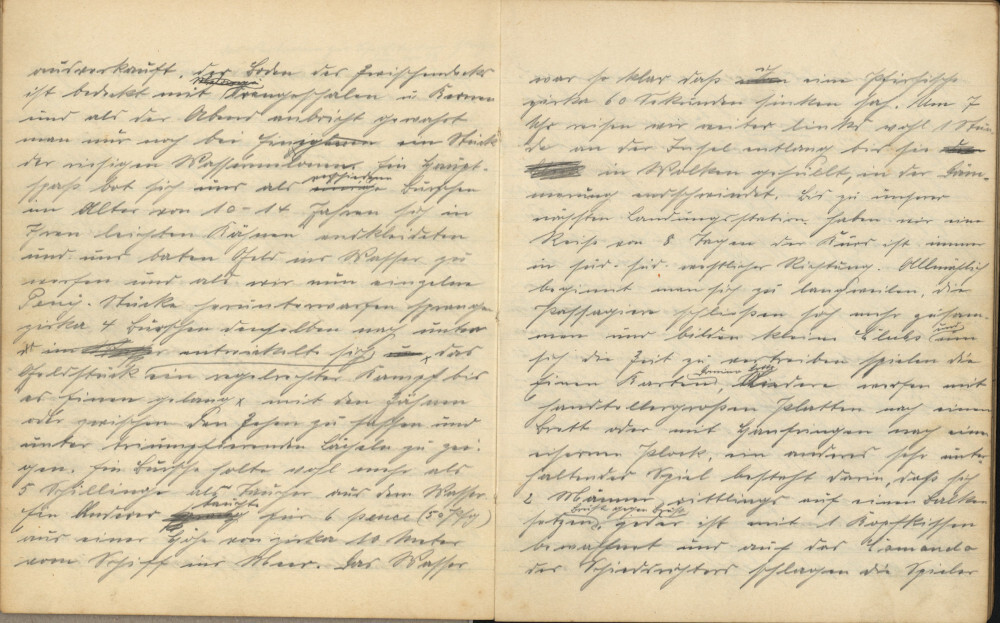 ausverkauft. der Boden des Zwischendecks
ist bedeckt mit Orangeschalen u Kernen
und als der Abend anbricht gewahrt
man nur noch bei ein Stück
der riesigen Wassermelonen. Ein Haupt-
spaß bot sich uns als Burschen
im Alter von 10-14 Jahren sich in
Ihren leichten Kähnen entkleideten
und uns baten Geld ins Wasser zu
werfen und als wir nun einzelne
Penny. Stücke herunterwarfen sprangen
zirka 4 Burschen denselben nach, unter
im entwickelte sich um das
Geldstück ein regelrechter Kampf bis
es Einem gelang mit den Zähnen
oder zwischen den Zehen zu fassen und
unter triumpfierenden Lächeln zu zei-
gen. Ein Bursche holte wohl mehr als
5 Schillinge als Taucher aus dem Wasser
Ein Anderer tauchte für 6 pence (50 Pfg)
aus einer Höhe von zirka 10 Meter
vom Schiff ins Meer. Das Wasser
war so klar daß eine Pfirsische
zirka 60 Sekunden sinken sah. Um 7
Uhr reisen wir weiter links wohl 1 Stun-
de an der Insel entlang bis sie
in Wolken gehüllt, in der Däm-
merung entschwindet. Bis zu unserer
nächsten Landungsstation haben wir eine
Reise von 8 Tagen der Kurs ist immer
in süd-süd-westlicher Richtung. Allmählich
beginnt man sich zu langweilen, die
Passagiere schließen sich mehr zusam-
men und bilden kleine Clubs und um
sich die Zeit zu vertreiben spielen die
Einen Karten, Andere werfen mit
handtellergroßen Platten nach einem
Brett oder mit Hanfringen nach einem
eisernen Plock, ein anderes sehr unter-
haltendes Spiel besteht darin, daß sich
2 Männer rittlings auf einen Balken
setzen, Brust gegen Brust jeder ist mit 1 Kopfkissen
bewaffnet und auf das Comando
des Schiedsrichters schlagen die Spieler